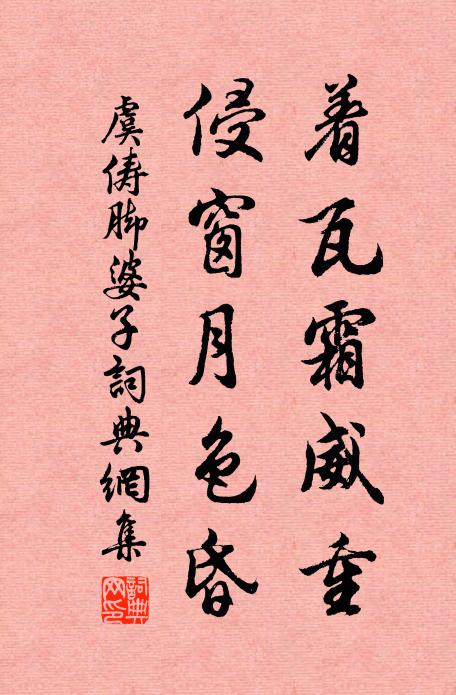 着瓦霜威重
侵窗月色昏
虞俦脚婆子詞典網集
詞典网印